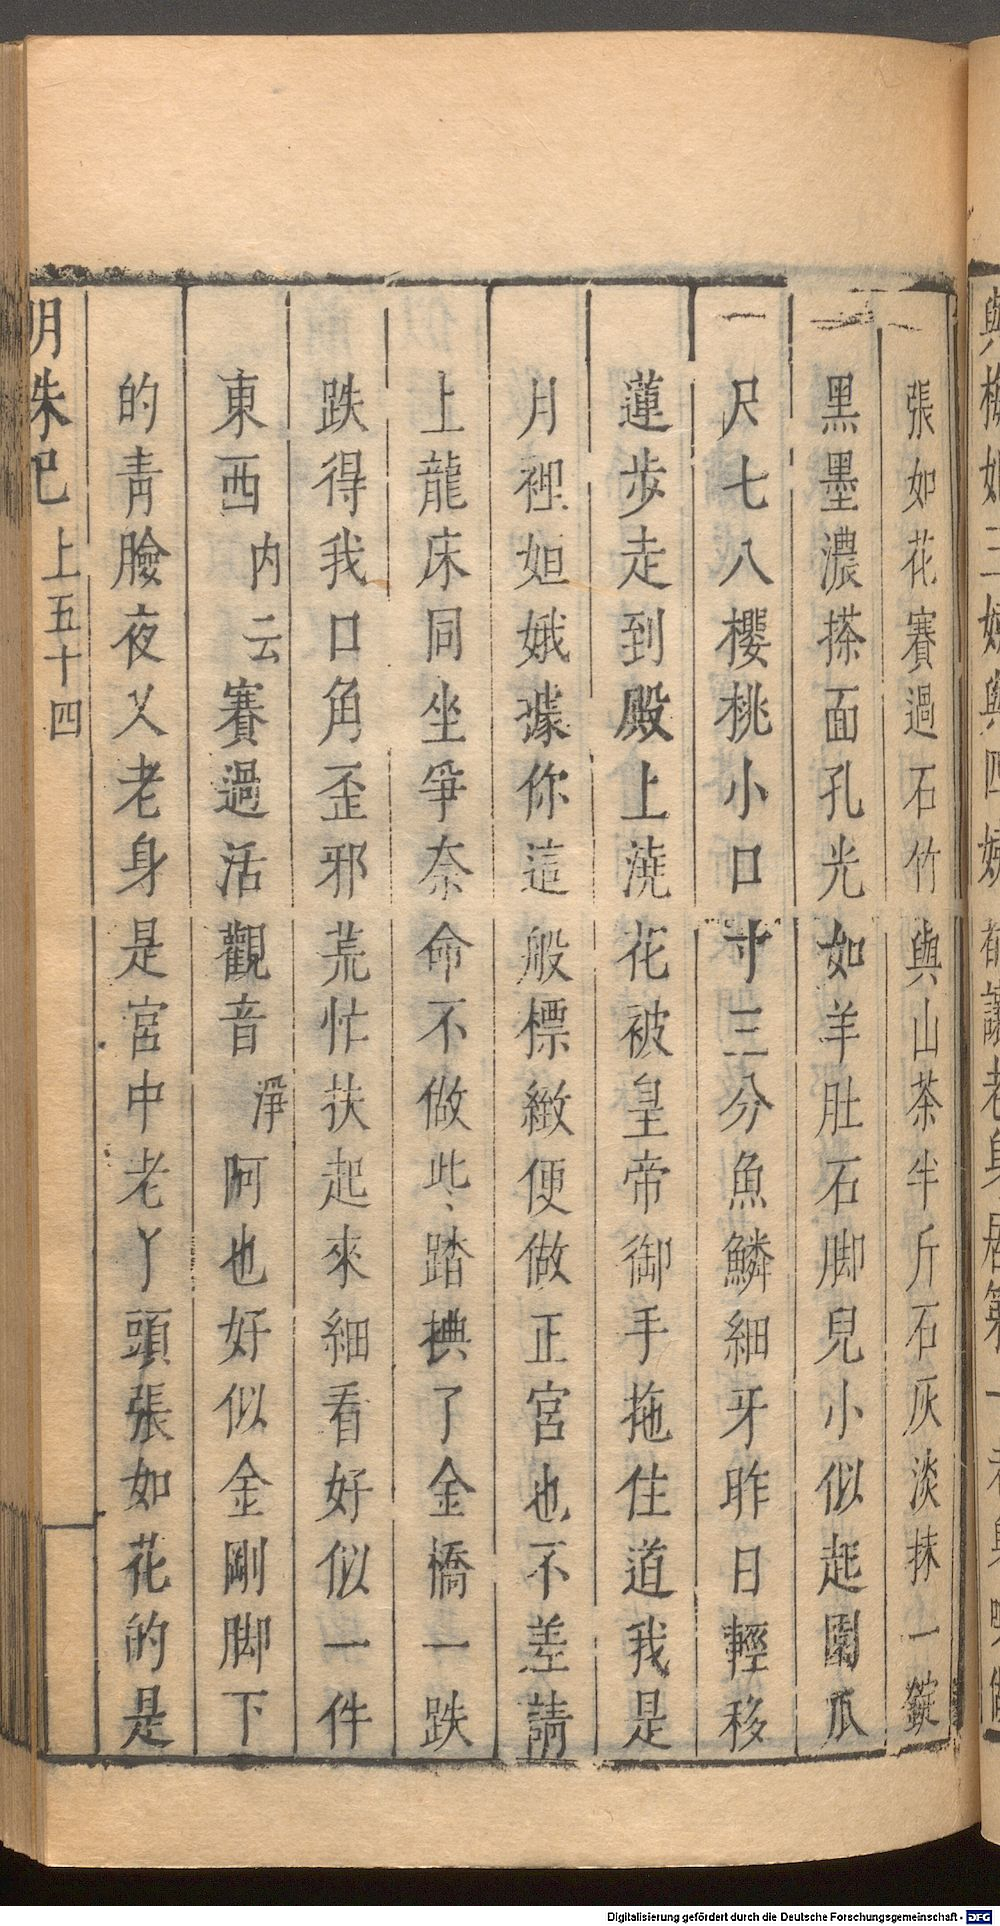 張如花賽過石竹與山茶半斤石灰淡抹一錠
黑墨濃搽面孔光如羊肚石脚兒小似起園瓜
一尺七八櫻桃小口寸三分魚鱗細牙昨日輕移
蓮步走到殿上澆花被皇帝御手拖住道我是
月裡姮娥據你這般標緻便做正宮也不差請
上龍床同坐爭奈命不做此踏㨪了金橋一跌
跌得我口角歪邪荒忙扶起來細看好似一件
東西內云賽過活觀音淨阿也好似金剛脚下
的靑臉夜乂老身是宮中老丫頭張如花的是
明珠記 上五十四
Digitalisierung gefördert durch die Deutsche Forschungsgemeinschaft - DFG